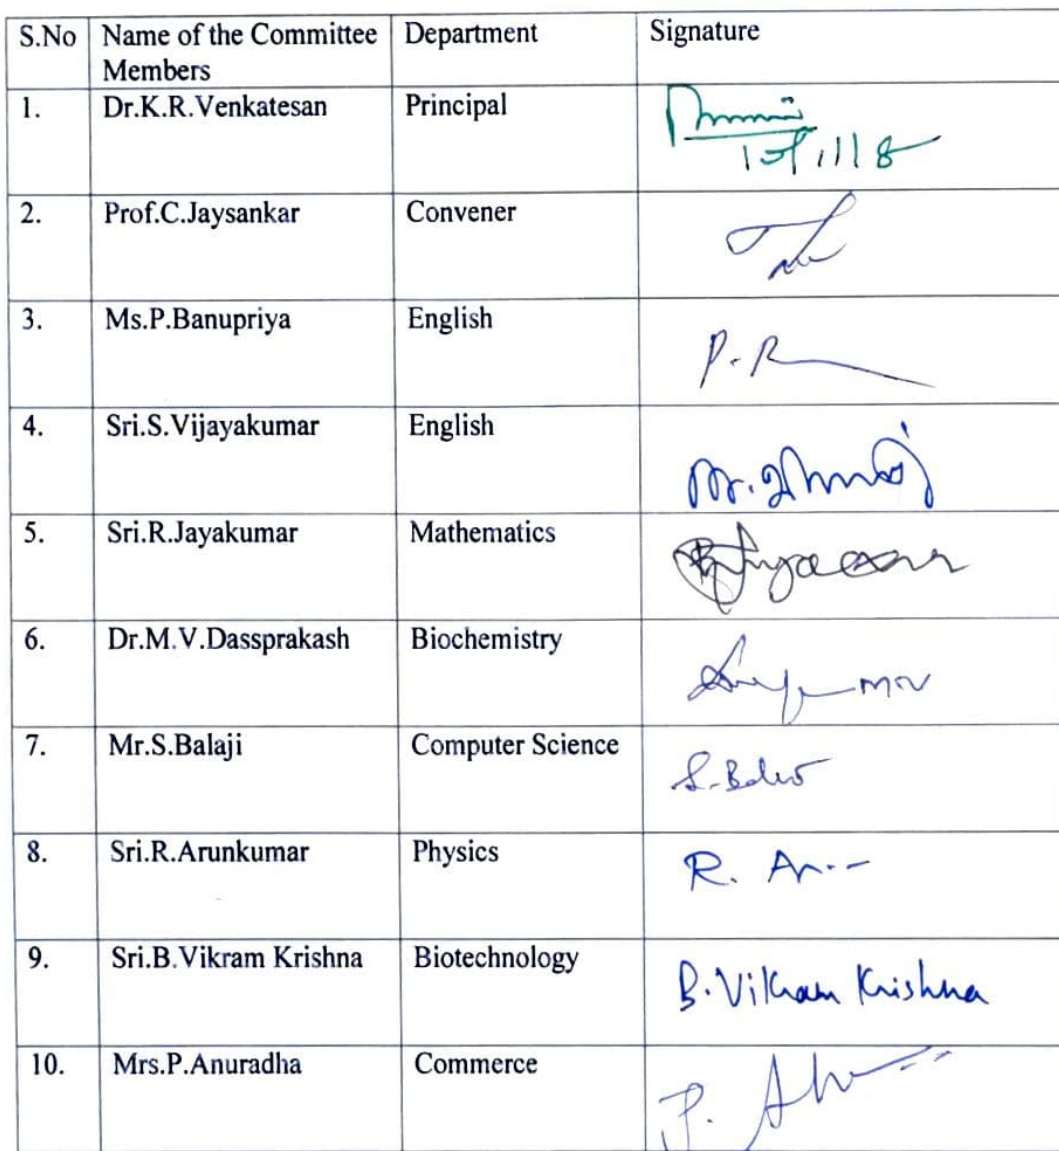 S.No Name of the Committee Members Department Signature
1. Dr.K.R.Venkatesan Principal
10/1/18
2. Prof.C.Jaysankar Convener
3. Ms.P.Banupriya English
P.
4. Sri.S.Vijayakumar English
5. Sri.R.Jayakumar Mathematics
6. Dr.M.V.Dassprakash Biochemistry
7. Mr.S.Balaji Computer Science
8. Sri.R.Arunkumar Physics
R.
9. Sri.B.Vikram Krishna Biotechnology
B. Vikram Krishna
10. Mrs.P.Anuradha Commerce
P.